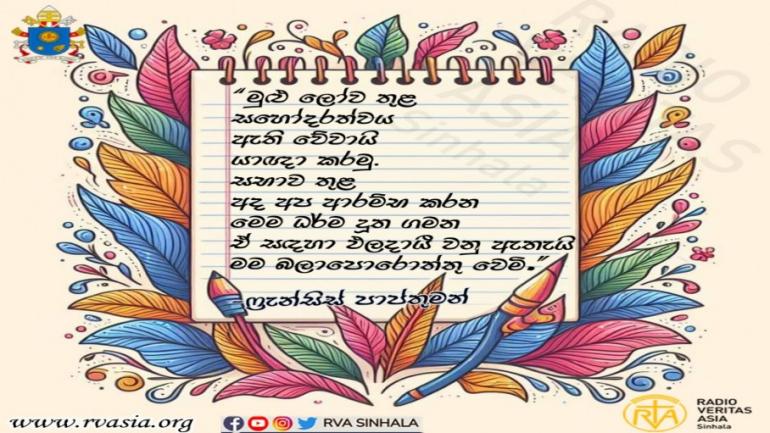 “මුළු ලෝව තුළ
සහෝදරත්වය
ඇති වේවායි
යාඥා කරමු.
සභාව තුළ
අද අප ආරම්භ කරන
මෙම ධර්ම දූත ගමන
ඒ සඳහා ඵලදායී වනු ඇතැයි
මම බලාපොරොත්තු වෙමි.”
-ෆ්‍රැන්සිස් පාප්තුමන්
RADIO VERITAS ASIA Sinhala
www.rvasia.org
RVA SINHALA
RADIO
VERITAS
ASIA
Sinhala
RVA